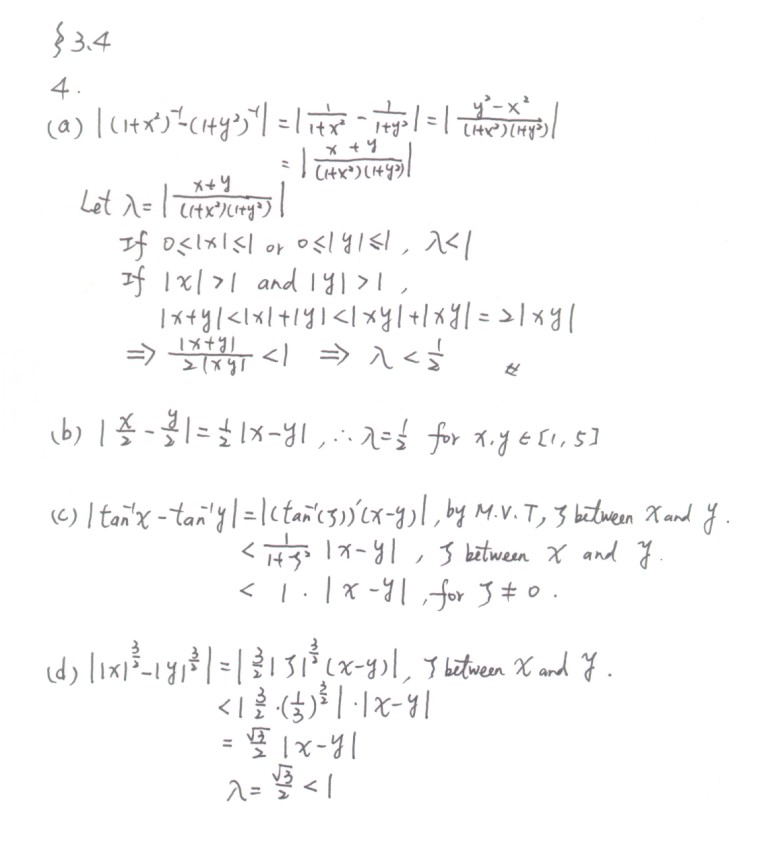 §3.4
4.
(a) |(1+x²)⁻¹-(1+y²)⁻¹| = |1/(1+x²) - 1/(1+y²)| = |(y²-x²)/((1+x²)(1+y²))|
= |(x+y)/((1+x²)(1+y²))|
Let λ = |(x+y)/((1+x²)(1+y²))|
If 0≤|x|≤1 or 0≤|y|≤1, λ<1
If |x|>1 and |y|>1,
|x+y|<|x|+|y|<|xy|+|xy| = 2|xy|
⇒ |x+y|/(2|xy|) < 1 ⇒ λ < 1/2
(b) |x/2 - y/2| = 1/2 |x-y|, ∴ λ = 1/2 for x,y ∈ [1,5]
(c) |tan⁻¹x - tan⁻¹y| = |(tan⁻¹(ξ))'(x-y)|, by M.V.T, ξ between x and y.
< 1/(1+ξ²) |x-y|, ξ between x and y.
< 1·|x-y|, for ξ ≠ 0.
(d) ||x|^(3/2) - |y|^(3/2)| = |3/2 |ξ|^(3/2) (x-y)|, ξ between x and y.
< |3/2·(1/3)^(3/2)|·|x-y|
= √3/2 |x-y|
λ = √3/2 < 1